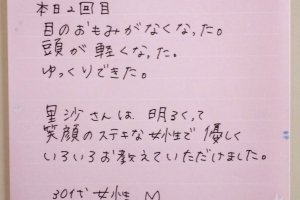 本日2回目
目のおもみがなくなった。
頭が軽くなった。
ゆっくりできた。
里沙さんは、明るくって
笑顔のステキな女性で優しく
いろいろお教えていただけました。
30代 女性 M